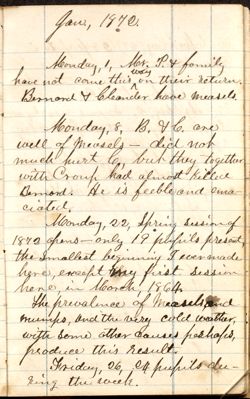 Jan, 1872.
Monday, 1, Mr. P. & family
have not come this way on their return.
Bernard & Cleander have measels.
Monday, 8, B. & C. are
well of measels — did not
much hurt C, but they together
with Croup had almost killed
Bernard. He is feeble and ema-
ciated.
Monday, 22, Spring session of
1872 opens — only 19 pupils present,
the smallest beginning I ever made
here, except my first session
here, in March, 1864.
The prevalence of measels, and
mumps, and the very cold weather,
with some other causes perhaps,
produce this result.
Friday, 26, 24 pupils du-
ring the week.